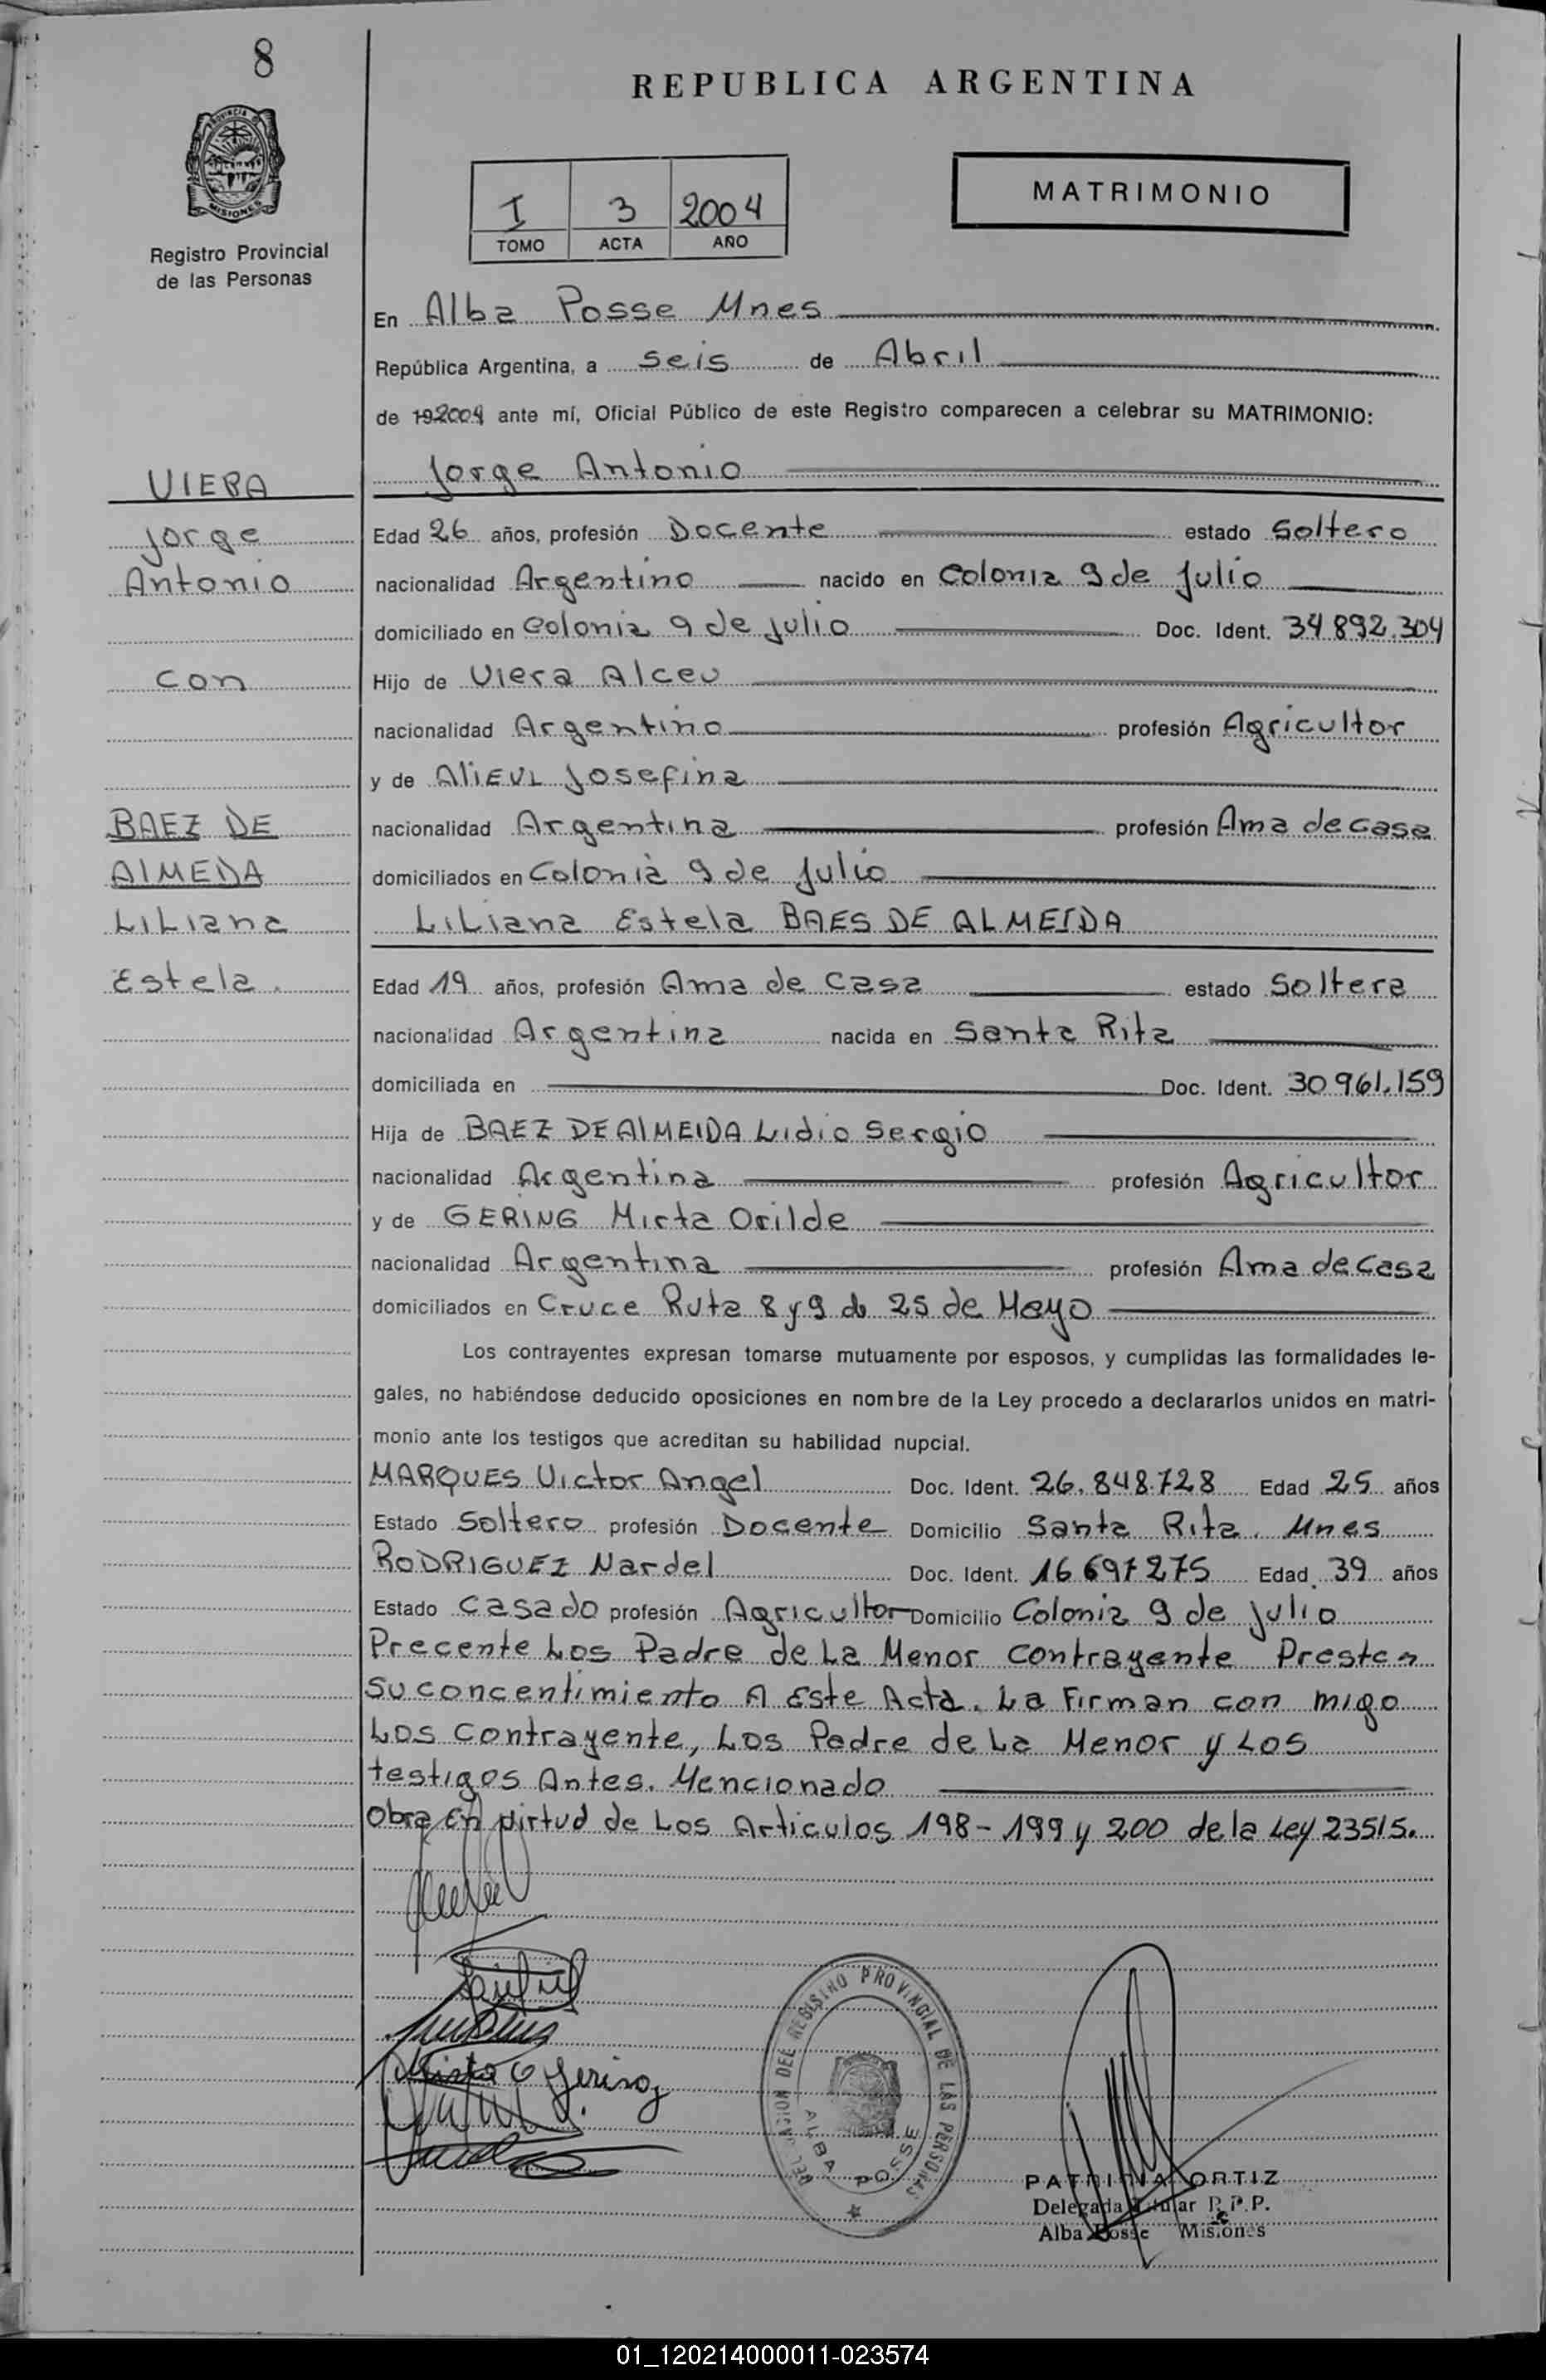 8
REPUBLICA ARGENTINA
PROVINCIA DE
MISIONES
Registro Provincial
de las Personas
I 3 2004
TOMO ACTA AÑO
MATRIMONIO
En Alba Posse Mnes
República Argentina, a seis de Abril
de 192004 ante mí, Oficial Público de este Registro comparecen a celebrar su MATRIMONIO:
VIERA
Jorge Antonio
Jorge
Edad 26 años, profesión Docente estado Soltero
Antonio
nacionalidad Argentino nacido en Colonia 9 de Julio
domiciliado en Colonia 9 de Julio Doc. Ident. 34 892.304
con
Hijo de Viera Alceu
nacionalidad Argentino profesión Agricultor
y de AliEVL Josefina
BAEZ DE
nacionalidad Argentina profesión Ama de casa
AlMEDA
domiciliados en Colonia 9 de Julio
LiLiana
LiLiana Estela BAES DE ALMEIDA
Estela.
Edad 19 años, profesión Ama de Casa estado Soltera
nacionalidad Argentina nacida en Santa Rita
domiciliada en Doc. Ident. 30.961.159
Hija de BAEZ DE AlMEIDA Lidio Sergio
nacionalidad Argentina profesión Agricultor
y de GERING Mirta Orilde
nacionalidad Argentina profesión Ama de Casa
domiciliados en Cruce Ruta 8 y 9 de 25 de Mayo
Los contrayentes expresan tomarse mutuamente por esposos, y cumplidas las formalidades le-
gales, no habiéndose deducido oposiciones en nombre de la Ley procedo a declararlos unidos en matri-
monio ante los testigos que acreditan su habilidad nupcial.
MARQUES Victor Angel Doc. Ident. 26.848.728 Edad 25 años
Estado Soltero profesión Docente Domicilio Santa Rita. Mnes
RODRIGUEZ Nardel Doc. Ident. 16 697 275 Edad 39 años
Estado Casado profesión Agricultor Domicilio Colonia 9 de Julio
Precente Los Padre de La Menor contrayente Presten
su concentimiento A Este Acta. La Firman con migo
Los contrayente, Los Padre de La Menor y Los
testigos Antes. Mencionado
Obra en virtud de Los Articulos 198-199 y 200 de la Ley 23515.
Mirta O Gering
DELEGACION DEL REGISTRO PROVINCIAL DE LAS PERSONAS
ALBA POSSE
PATRICIA ORTIZ
Delegada Titular R.P.P.
Alba Posse Misiones
01_120214000011-023574